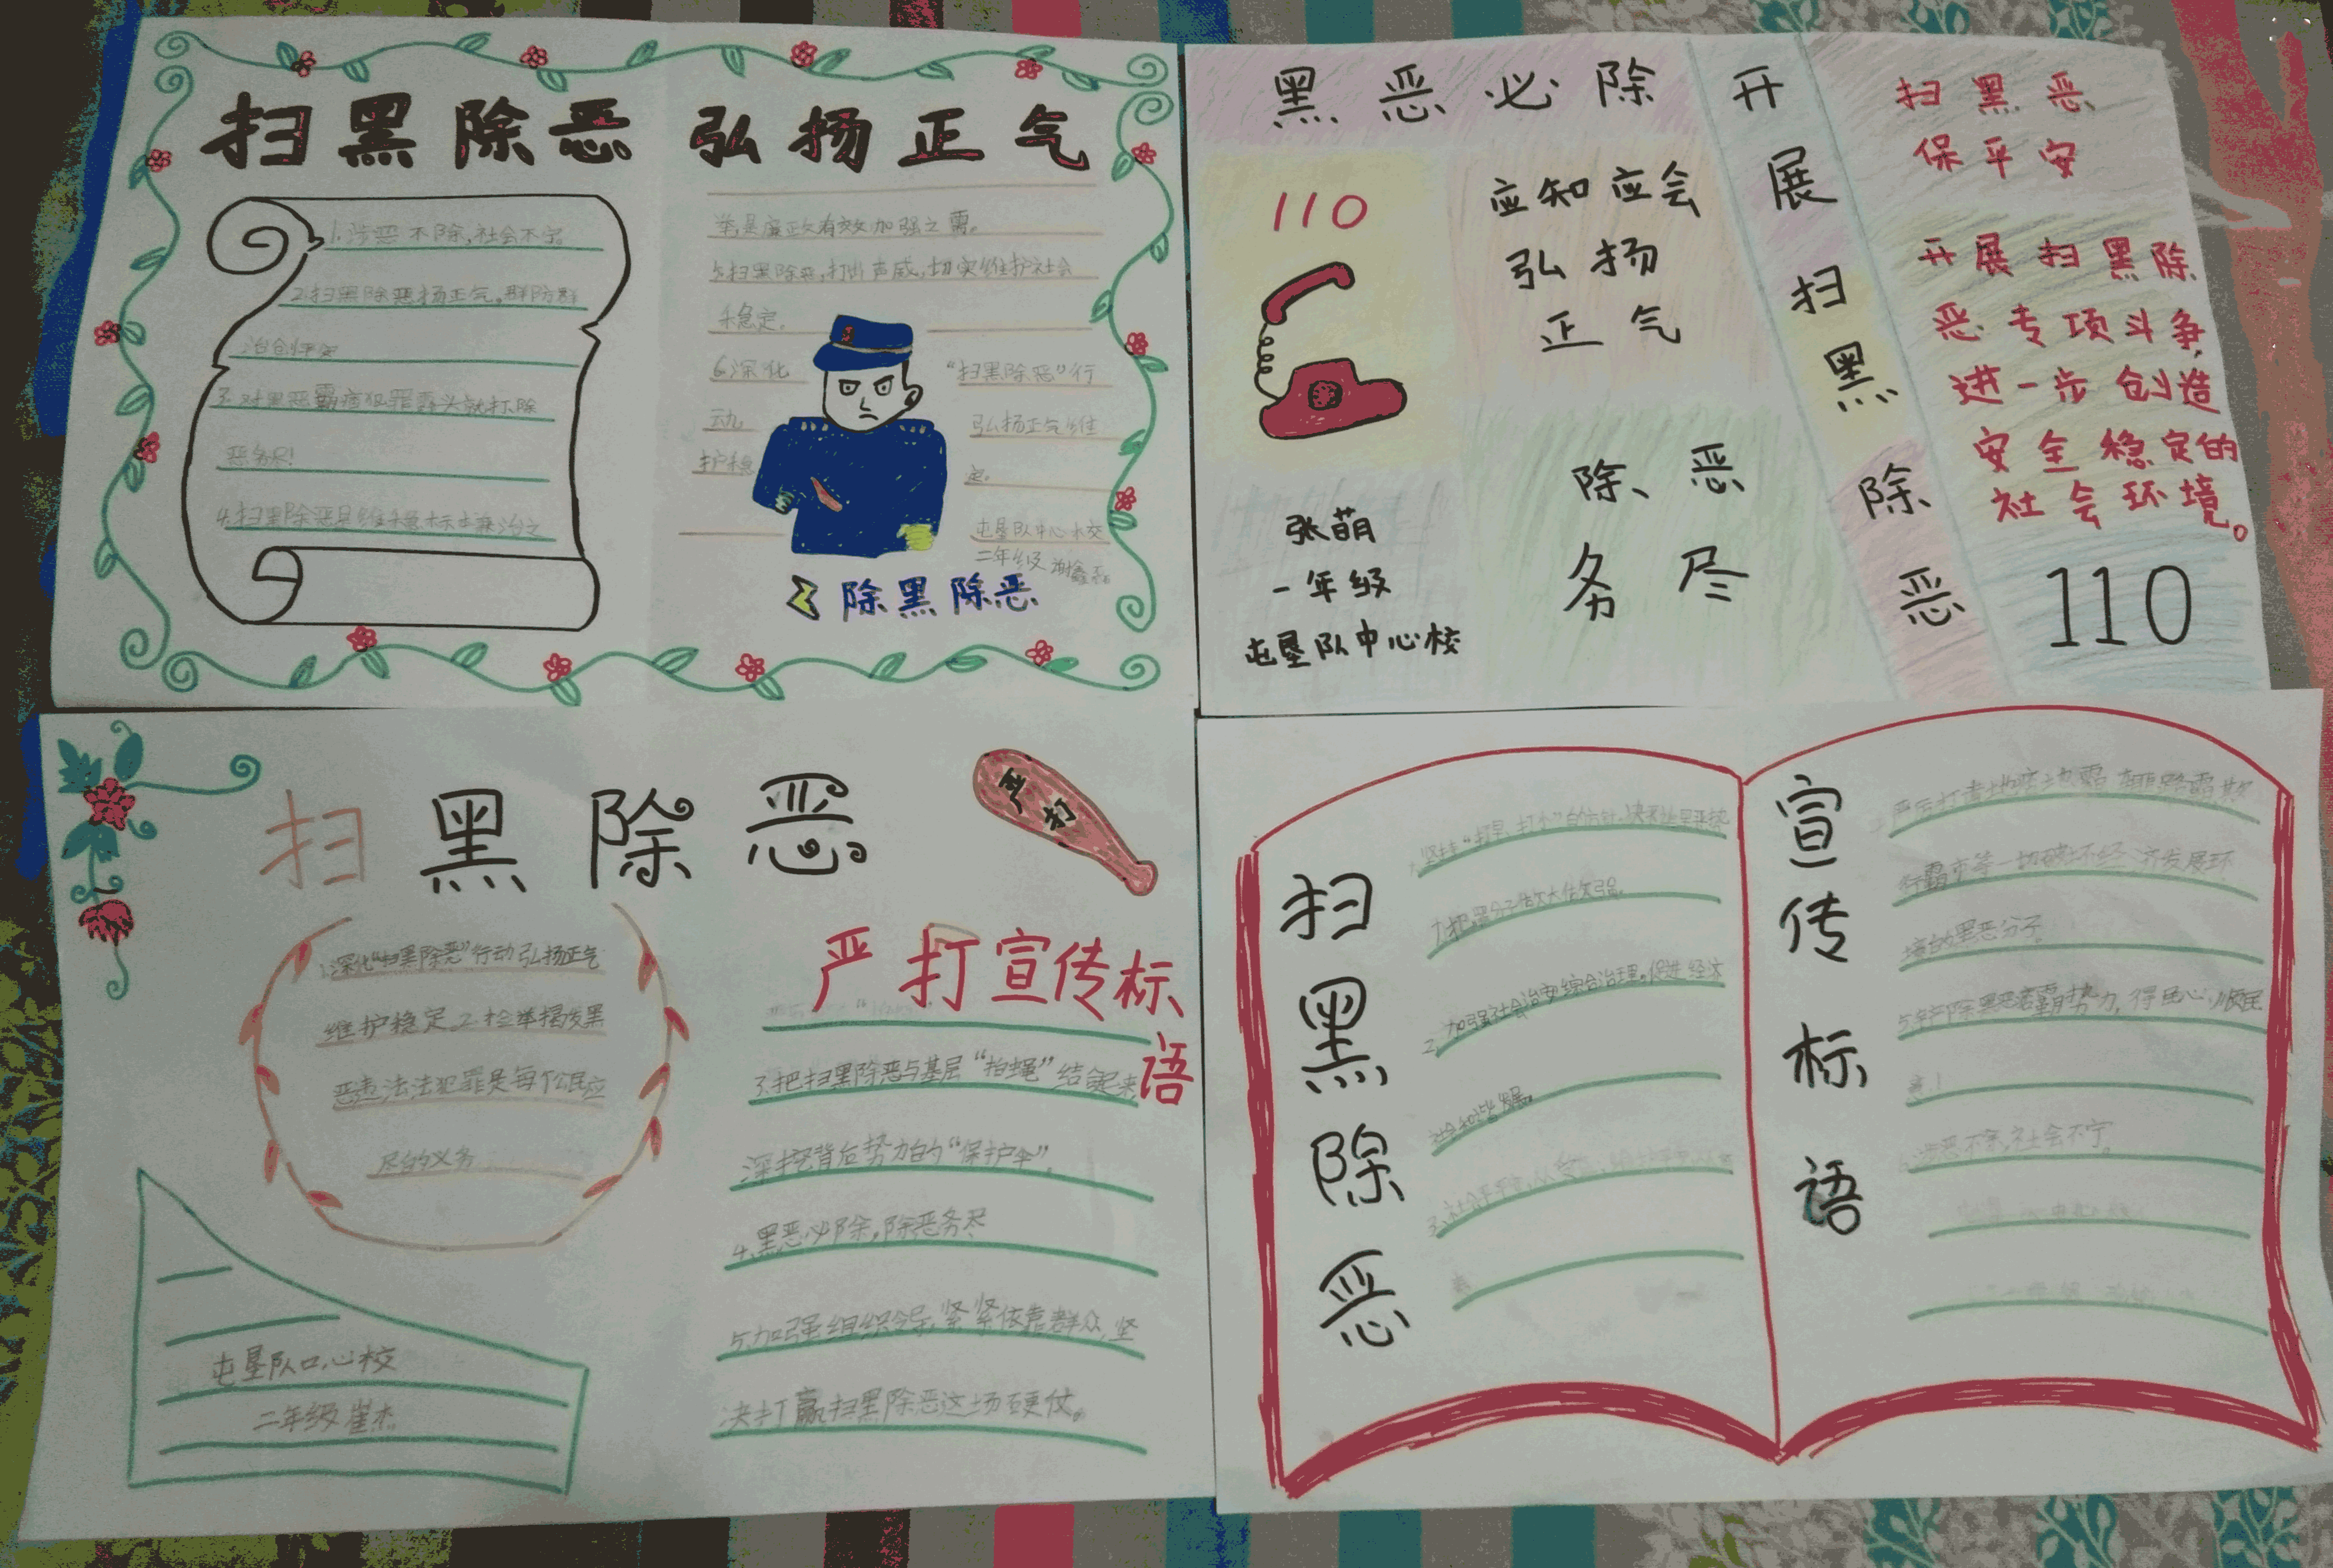 扫黑除恶 弘扬正气
1.涉恶不除,社会不宁。
2.扫黑除恶扬正气,群防群
治创平安
3.对黑恶霸痞犯罪露头就打,除
恶务尽!
4.扫黑除恶是维稳标本兼治之
举,是廉政有效加强之需。
5.扫黑除恶,打出声威,切实维护社会
稳定。
6.深化“扫黑除恶”行
动 弘扬正气维
护稳 定。
屯垦队中心校
二年级
除黑除恶
黑恶必除
110
应知应会
弘扬
正气
张萌
一年级
屯垦队中心校
除恶
务尽
开展扫黑除恶
扫黑恶
保平安
开展扫黑除
恶专项斗争,
进一步创造
安全稳定的
社会环境。
110
扫黑除恶
严打
1.深化“扫黑除恶”行动弘扬正气
维护稳定 2.检举揭发黑
恶违法法犯罪是每个公民应
尽的义务
屯垦队中心校
二年级 崔杰
严打宣传标语
3.把扫黑除恶与基层“拍蝇”结合起来,
深挖背后势力的“保护伞”。
4.黑恶必除,除恶务尽
5.加强组织领导,紧紧依靠群众,坚
决打赢扫黑除恶这场硬仗。
扫黑除恶
1.坚持“打早、打小”的方针,决不让黑恶势
力犯罪分子做大做强。
2.加强社会治安综合治理。促进经济
社会和谐发展。
宣传标语
严厉打击地痞
行霸市等一切破坏经济发展环
境的黑恶分子。
5.铲除黑恶霸势力,得民心,顺民
意!
涉恶不除,社会不宁。